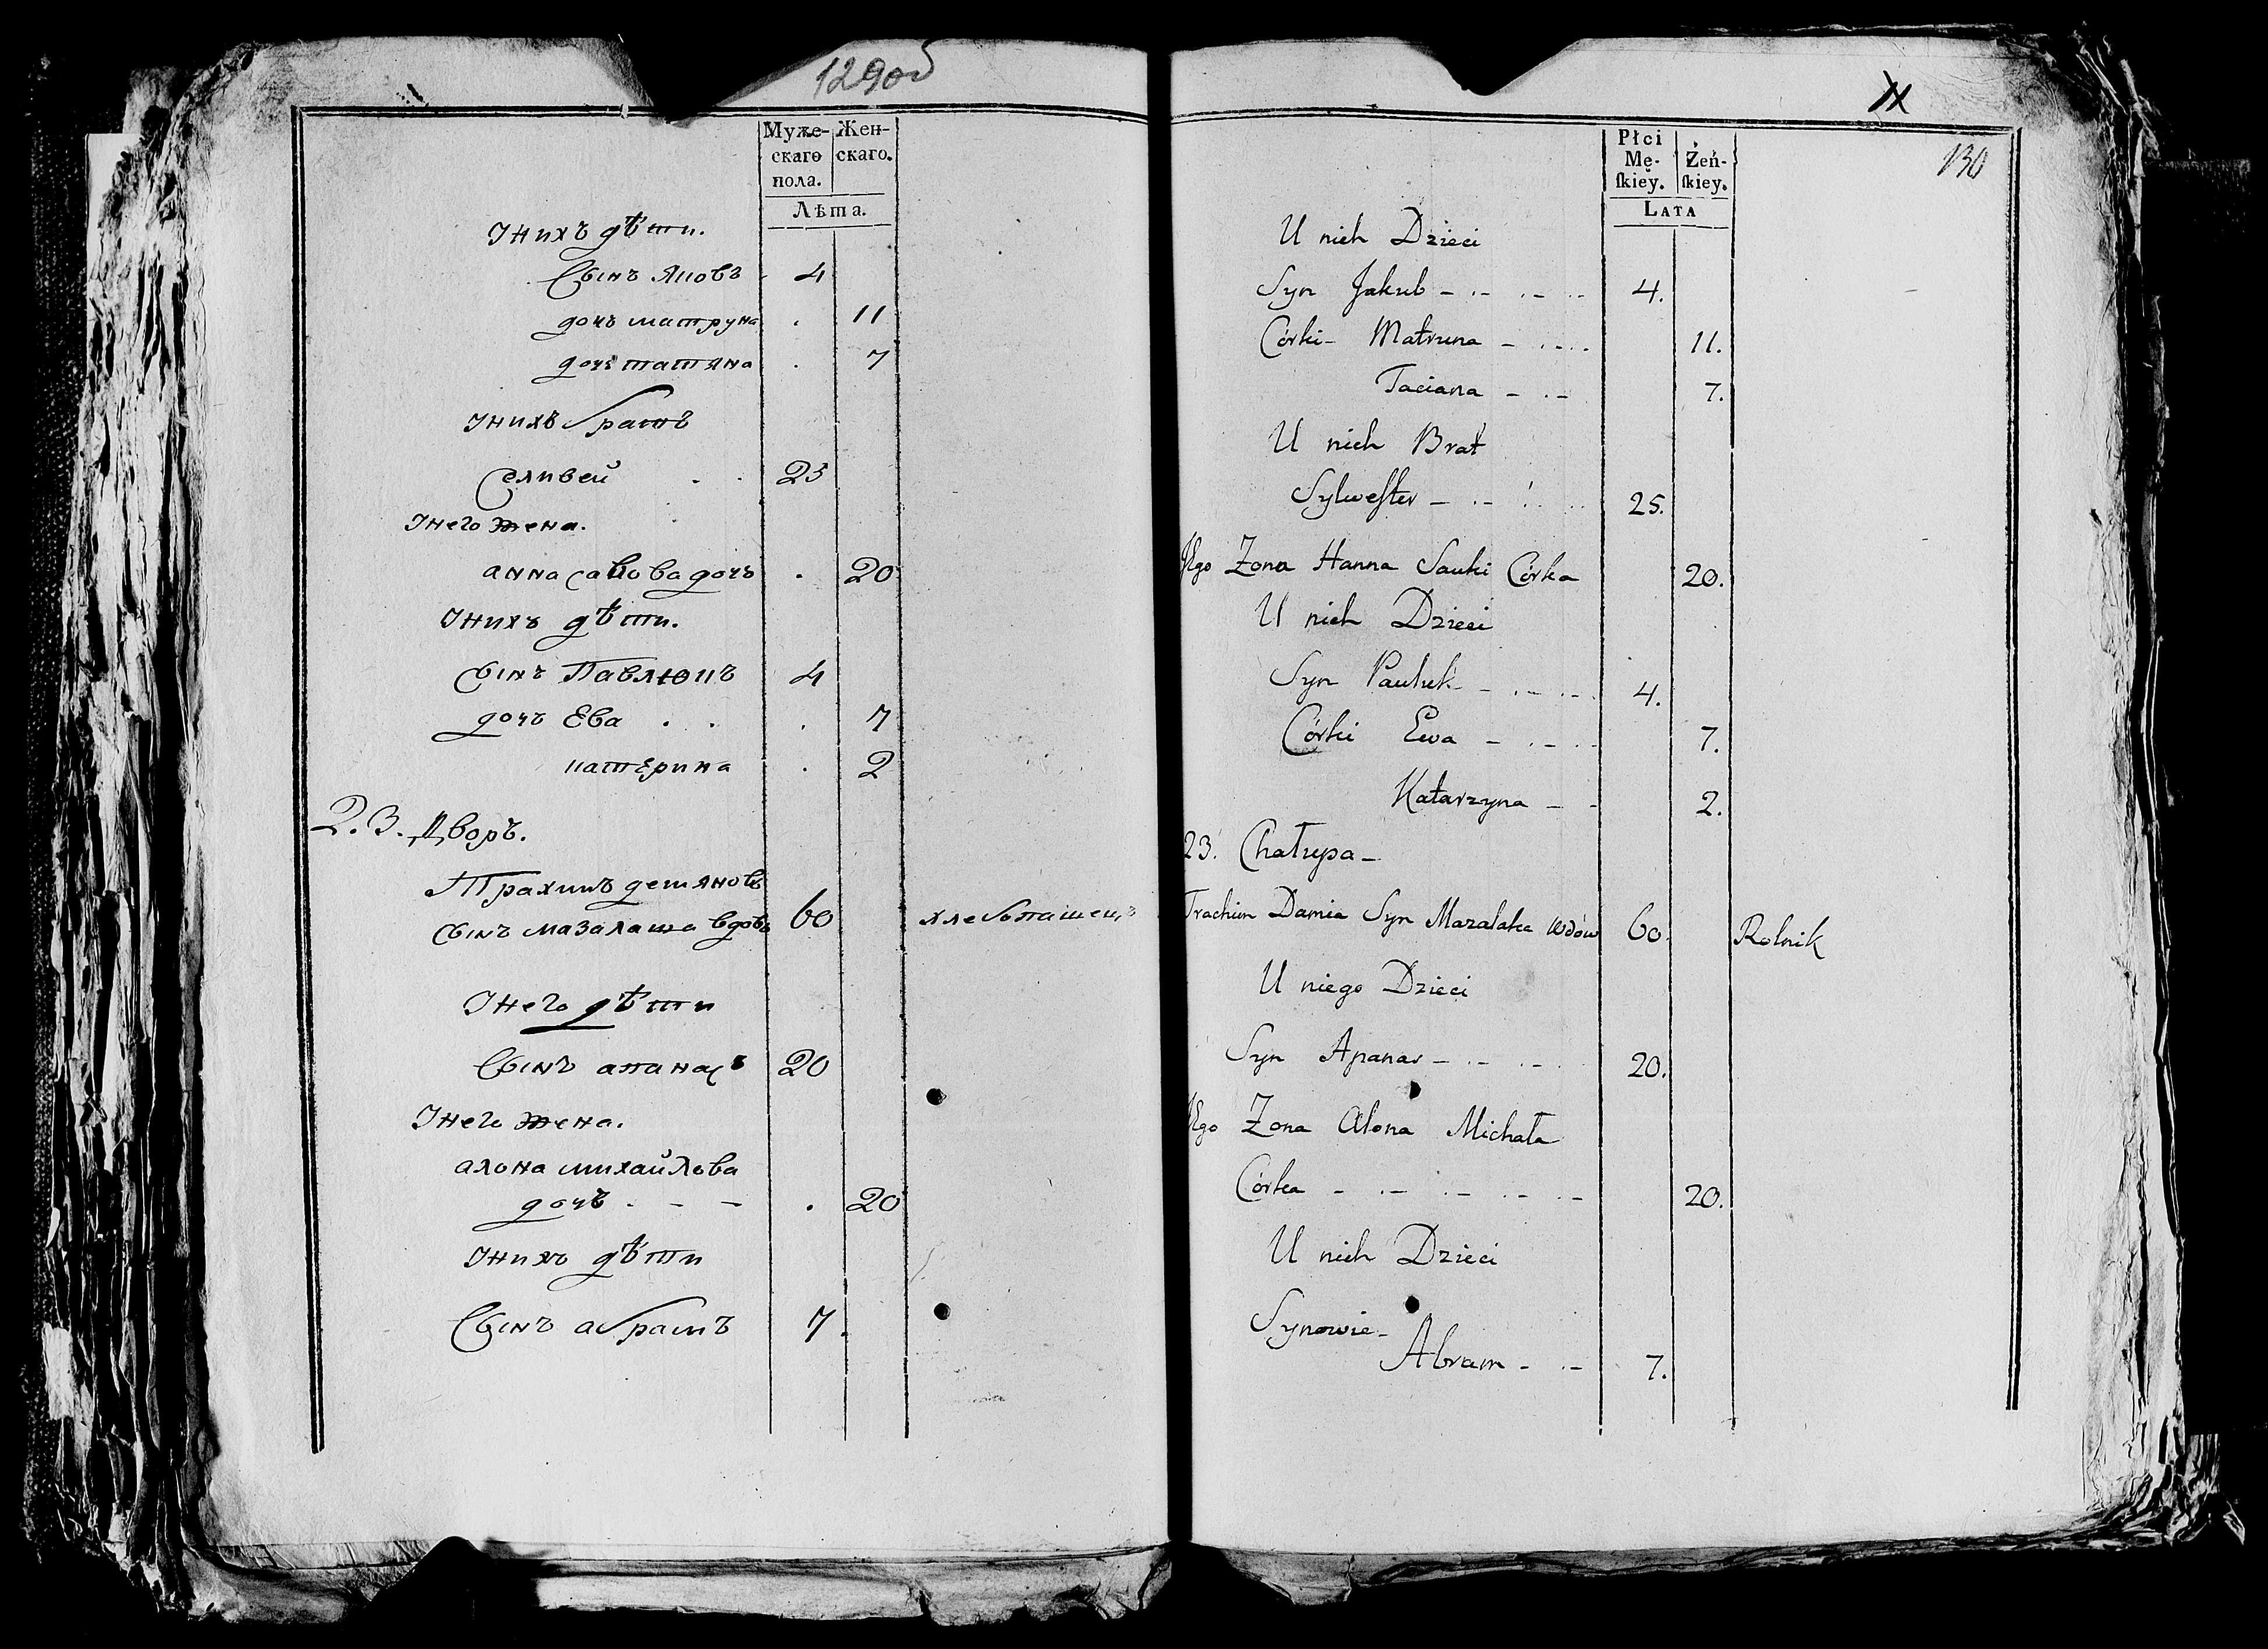 129об
Муже- Жен-
скаго скаго.
пола.
Лѣта.
Унихъ дѣти.
Сынъ Яковъ 4
дочь матруна . 11
дочь татяна . 7
Унихъ братъ
Селивей . . 25
Унего жена.
анна савкова дочь . 20
Унихъ дѣти.
Сынъ Павлюкъ 4
дочъ Ева . . . 7
катерина . 2
23. Дворъ.
Трахимъ демяновъ
Сынъ мазалака вдовъ 60 хлебопашецъ
Унего дѣти
Сынъ апанасъ 20
Унего жена.
алона михайлова
дочъ . - - . 20
Унихъ дѣти
Сынъ абрамъ 7.
130
Płci
Mę- Żeń-
ſkiey. ſkiey.
LATA
U nich Dzieci
Syn Jakub - .. .. .. 4.
Córki - Matruna - .. .. 11.
Taciana - .. 7.
U nich Brat
Sylweſter - .. .. 25.
Jego Zona Hanna Sauki Córka 20.
U nich Dzieci
Syn Pauluk - .. .. 4.
Córki Ewa - .. .. 7.
Katarzyna - - 2.
23. Chałupa -
Trachim Damia Syn Mazalaka Wdów 60. Rolnik
U niego Dzieci
Syn Apanas - .. .. 20.
Jego Zona Alona Michała
Córka - .. .. .. .. 20.
U nich Dzieci
Synowie -
Abram - .. 7.